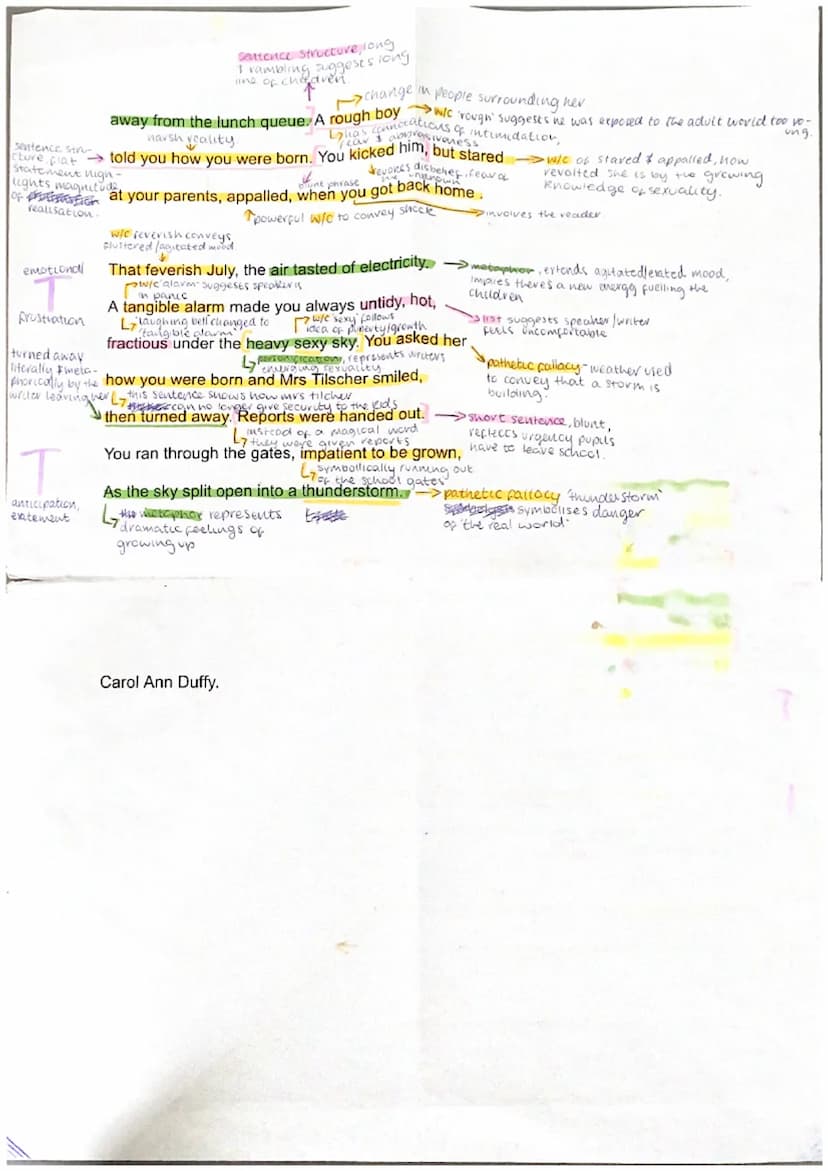 sentence structure, long
& rambling suggests long
line of children
change in people surrounding her
away from the lunch queue. A rough boy
w/c 'rough' suggests he was exposed to the adult world too yo-
ung.
harsh reality
has connotations of intimidation,
fear & aggressiveness
sentence stru-
cture, flat
statement high-
lights magnitude
of
realisation.
told you how you were born. You kicked him, but stared
w/c of stared & appalled, how
revolted she is by the growing
knowledge of sexuality.
blunt phrase
evokes disbelief, fear of
the unknown
at your parents, appalled, when you got back home.
powerful w/c to convey shock
involves the reader
w/c feverish conveys
flustered/agitated mood.
emotional
That feverish July, the air tasted of electricity.
metaphor, extends agitated/elated mood,
implies there's a new energy fuelling the
children
w/c 'alarm' suggests speaker is
in panic
A tangible alarm made you always untidy, hot,
frustration
'laughing bell changed to
'tangible alarm'
w/c 'sexy' follows
idea of puberty/growth
list suggests speaker/writer
feels uncomfortable
fractious under the heavy sexy sky. You asked her
personification, represents writers
emerging sexuality
pathetic fallacy - weather used
to convey that a storm is
building.
turned away
literally & meta-
phorically by the
writer leaving her
how you were born and Mrs Tilscher smiled,
this sentence shows how mrs tilcher
can no longer give security to the kids
then turned away. Reports were handed out.
short sentence, blunt,
reflects urgency pupils
have to leave school.
instead of a magical word
they were given reports
You ran through the gates, impatient to be grown,
symbollically running out
of the school gates
As the sky split open into a thunderstorm.
pathetic fallacy 'thunderstorm'
symbolises danger
of 'the real world'
anticipation,
excitement
metaphor represents
dramatic feelings of
growing up
Carol Ann Duffy.